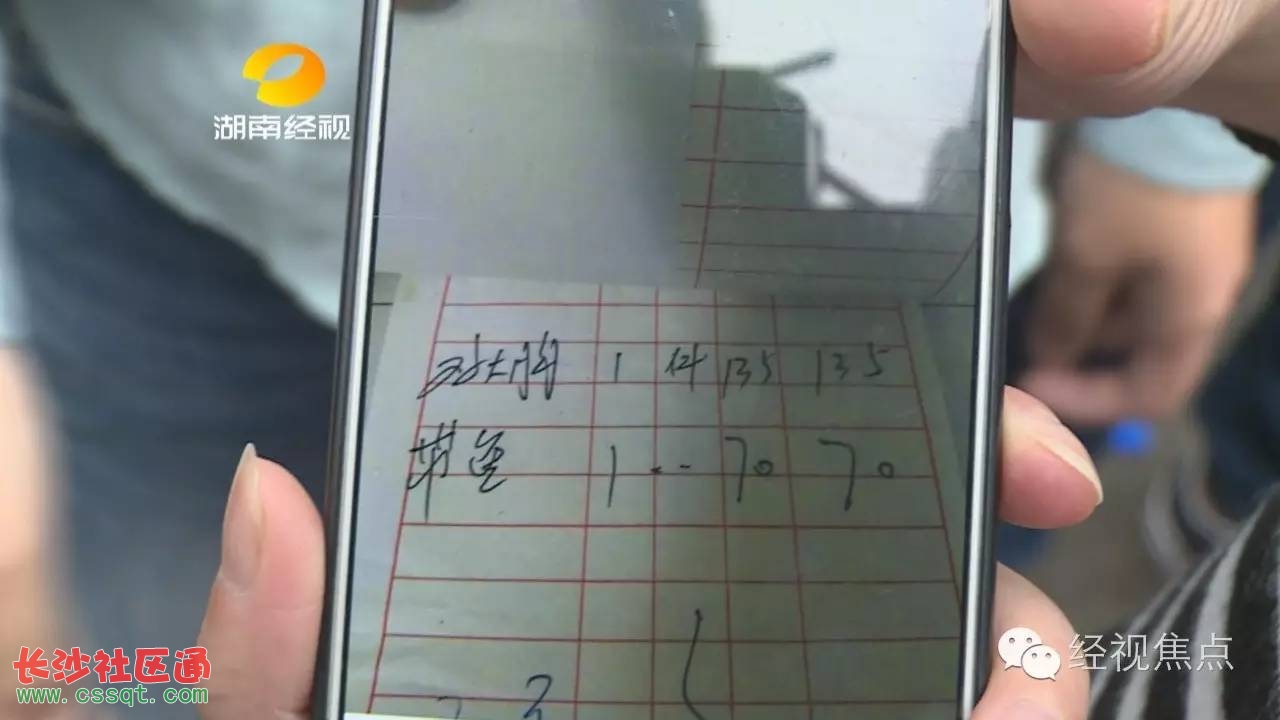 湖南经视
1 件 135 135
1 70 70
经视焦点
长沙社区通
www.cssqt.com